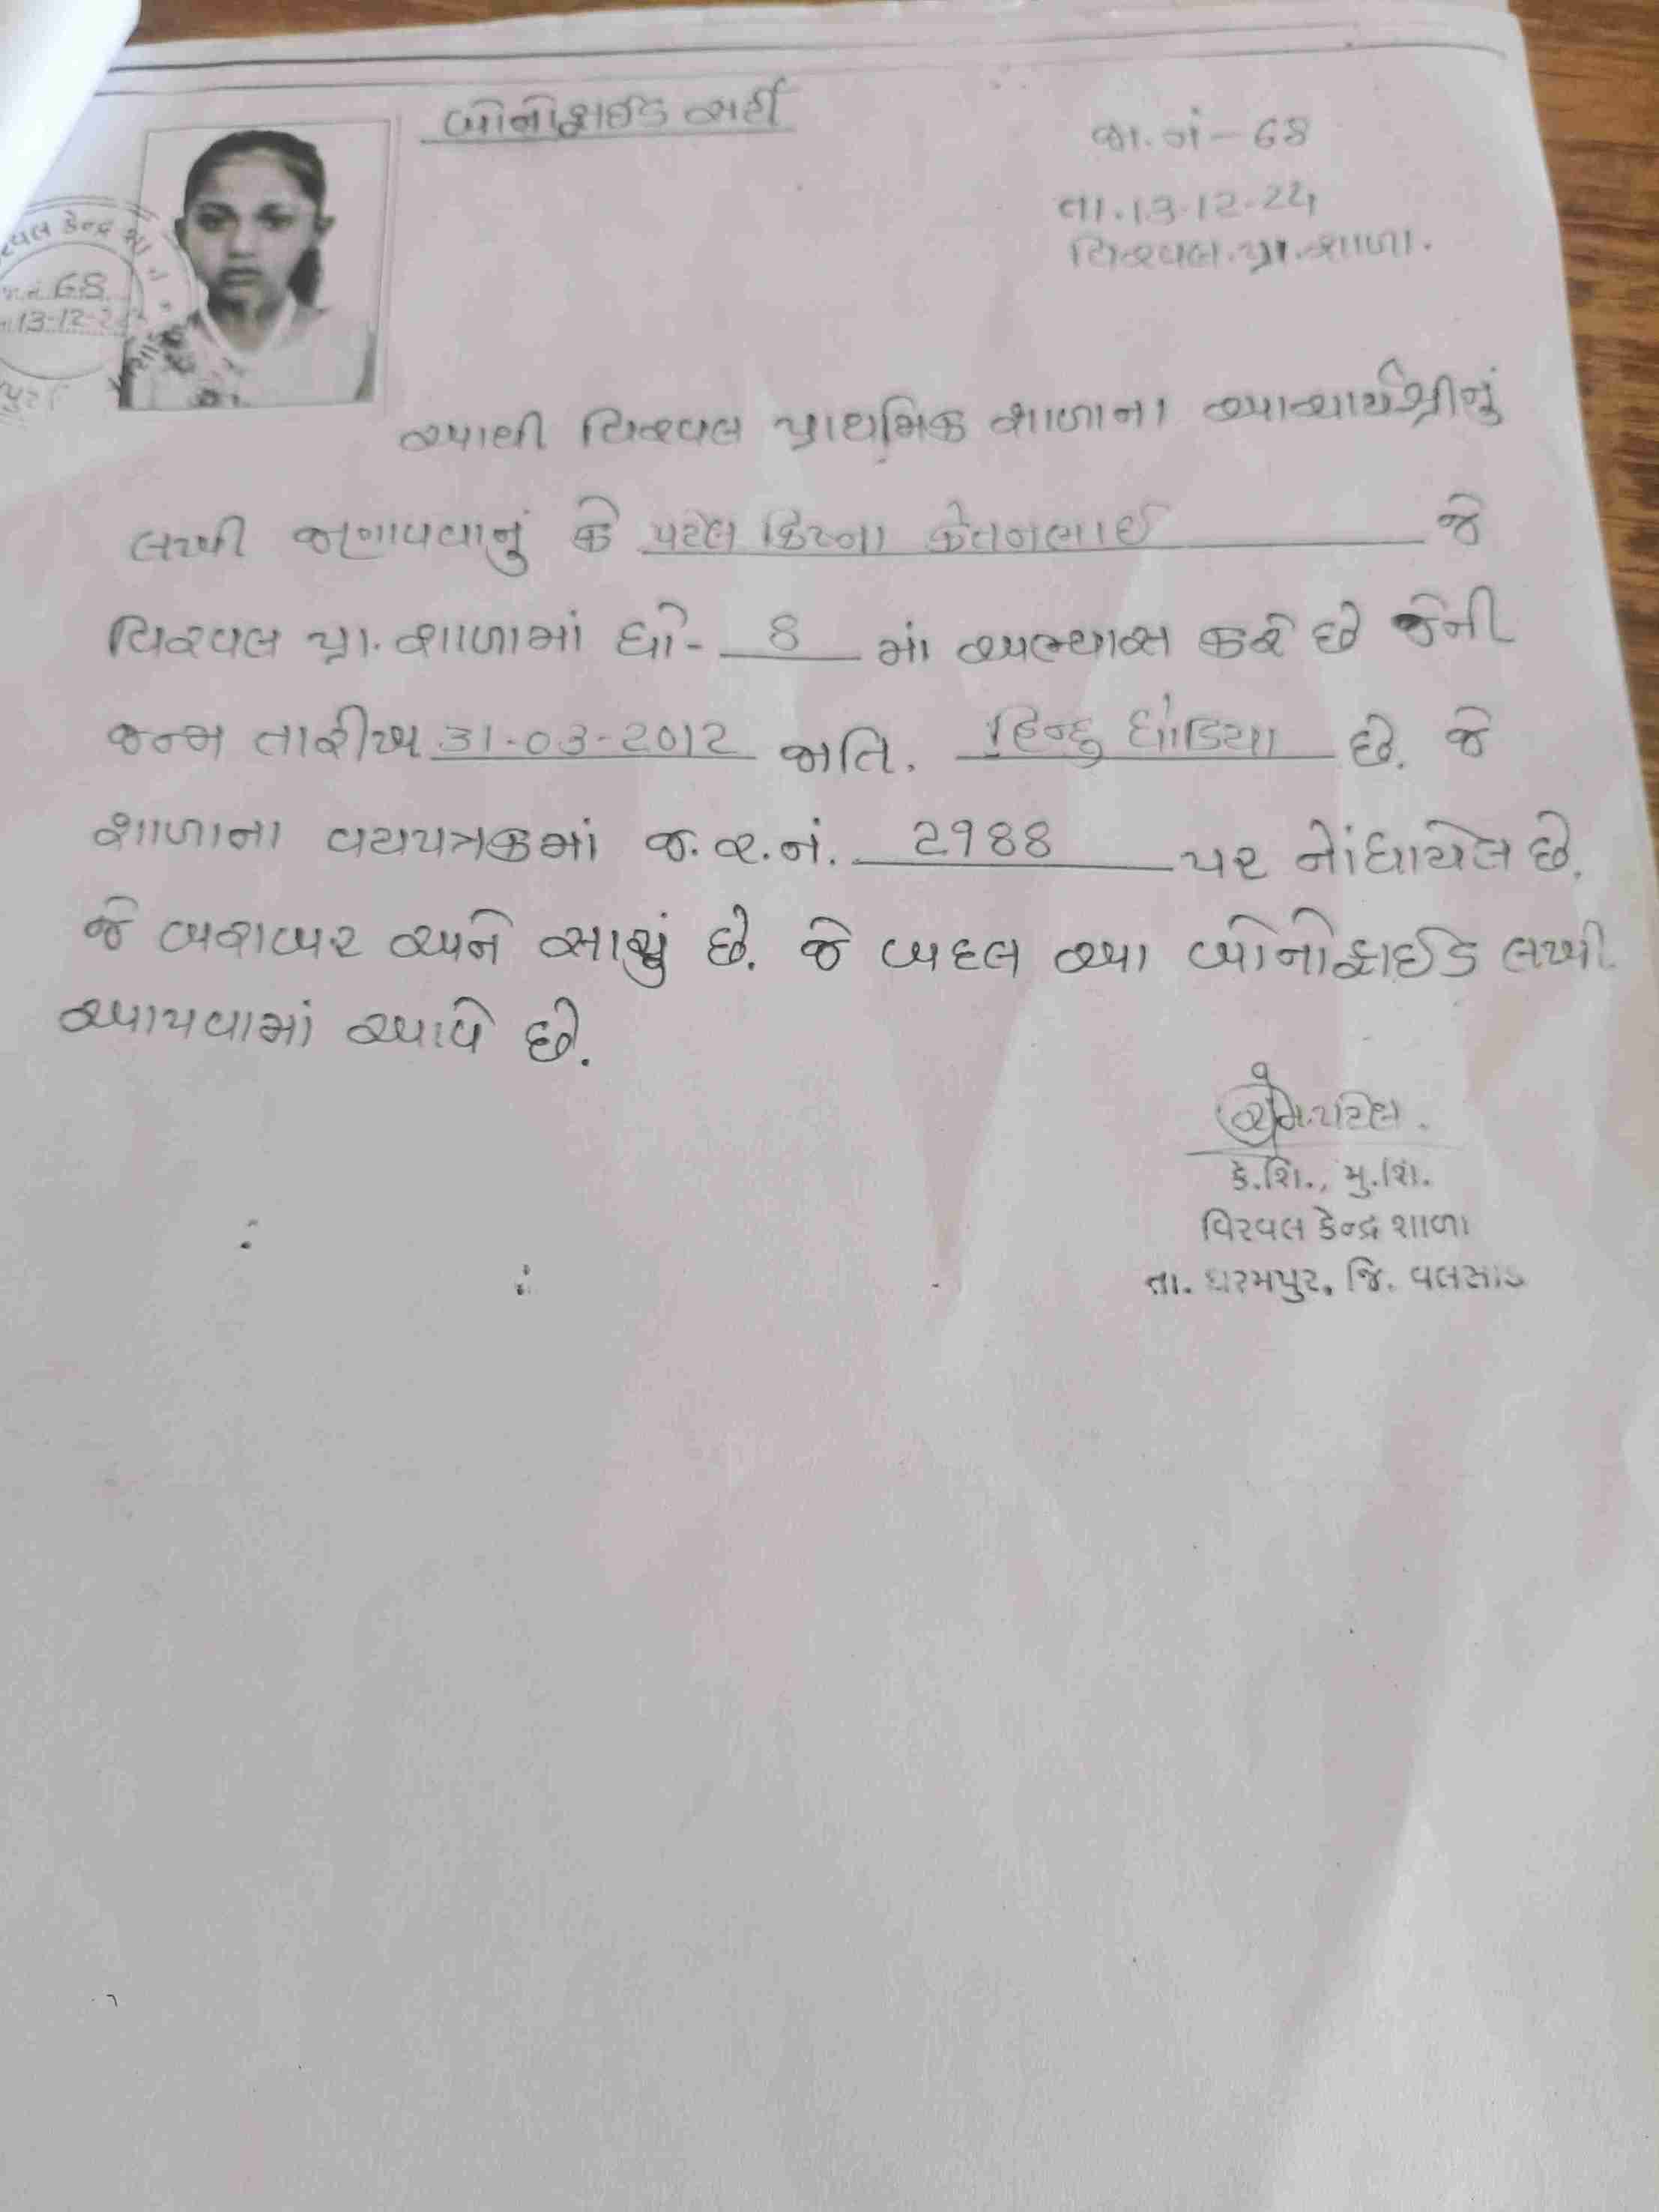 બોનોફાઈડ સર્ટી
જા.નં - 68
તા.13-12-24
વિરવલ.પ્રા.શાળા.
કેન્દ્ર શા
68
13-12-2
આથી વિરવલ પ્રાથમિક શાળાના આચાર્યશ્રીનું
લખી જણાવવાનું કે પટેલ ક્રિષ્ના કેતનભાઈ જે
વિરવલ પ્રા. શાળામાં ધો- 8 માં અભ્યાસ કરે છે જેની
જન્મ તારીખ 31-03-2012 જાતિ. હિન્દુ ધોડિયા છે. જે
શાળાના વયપત્રકમાં જ.ર.નં. 2988 પર નોંધાયેલ છે.
જે બરાબર અને સાચું છે. જે બદલ આ બોનોફાઈડ લખી
આપવામાં આવે છે.
કે.શિ., મુ.શિ.
વિરવલ કેન્દ્ર શાળા
તા. ધરમપુર, જિ. વલસાડ